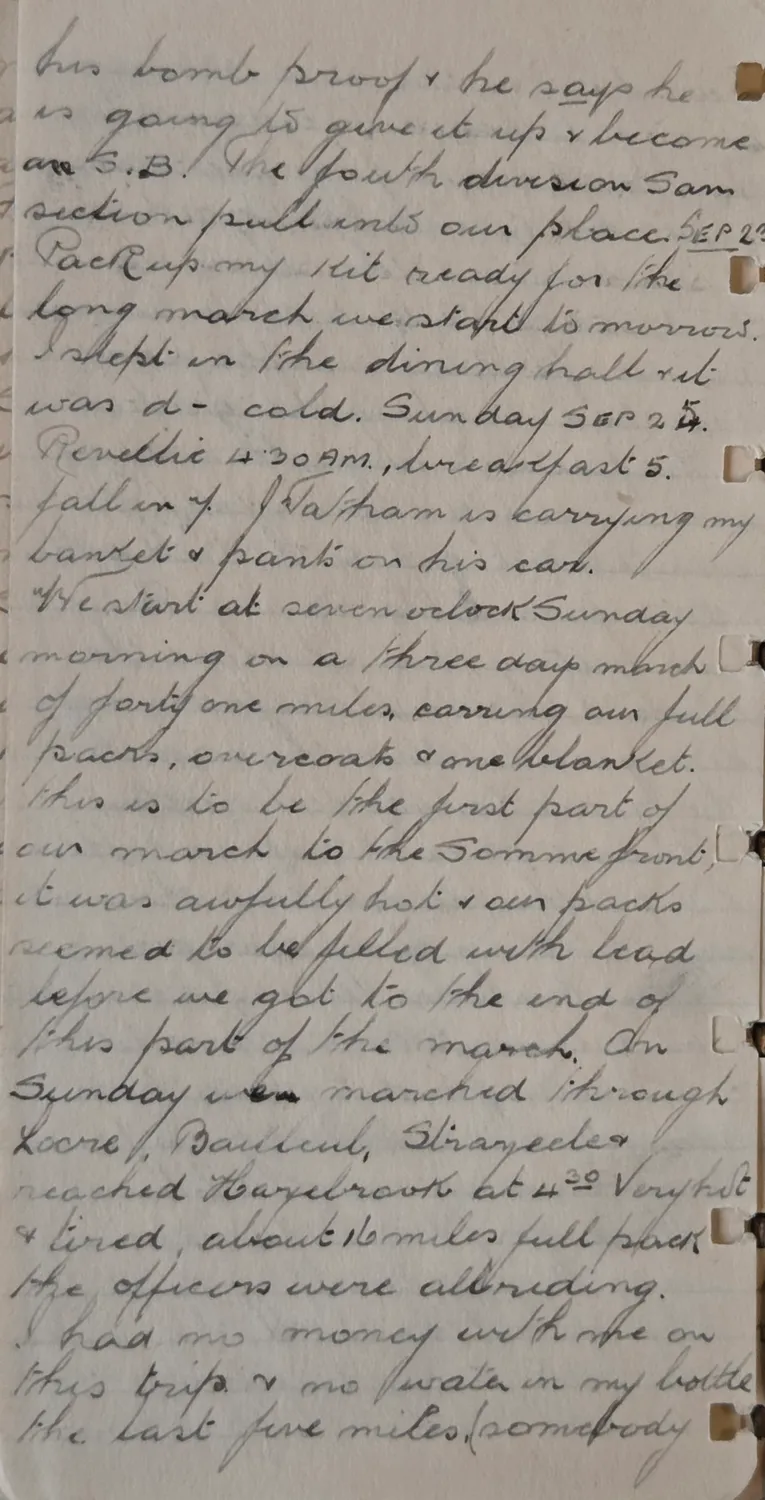 his bomb proof & he says he
is going to give it up & become
an S.B. The fouth division San
section pull into our place. SEP 23
Pack up my kit ready for the
long march we start tomorrow.
I slept in the dining hall & it
was d- cold. Sunday SEP 24.
Revellie 4.30 AM., breakfast 5.
fall in 7. J Watham is carrying my
banket & pants on his car.
We start at seven oclock Sunday
morning on a three days march
of forty one miles, carring our full
packs, overcoats & one blanket.
this is to be the first part of
our march to the Somme front,
it was awfully hot & our packs
seemed to be filled with lead
before we got to the end of
this part of the march. On
Sunday we marched through
Locre, Bailleul, Strazeele &
reached Hazebrook at 4 30 Very hot
& tired, about 16 miles full pack
the officers were all riding.
I had no money with me on
this trip & no water in my bottle
the last five miles, (somebody